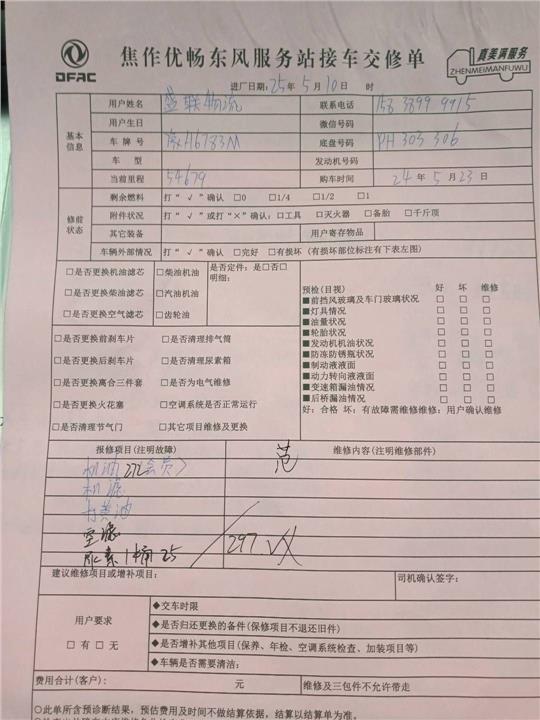 DFAC
焦作优畅东风服务站接车交修单
真美满服务
ZHENMEIMANFUWU
进厂日期: 25年 5月 10日 时
基本信息
用户姓名 盛联物流 联系电话 158 3899 9915
用户生日 微信号码
车牌号 H6783M 底盘号码 PH303306
车型 发动机号码
当前里程 54679 购车时间 24年 5月 23日
修前状态
剩余燃料 打“√”确认 □0 □1/4 □1/2 □1
附件状况 打“√”或打“×”确认: □工具 □灭火器 □备胎 □千斤顶
其它装备 用户寄存物品
车辆外部情况 打“√”确认 □完好 □有损坏 (有损坏部位标注有下表左图)
□是否更换机油滤芯 □柴油机油 是否定件: 是□否□
明细:
□是否更换柴油滤芯 □汽油机油
□是否更换空气滤芯 □齿轮油
□是否更换前刹车片 □是否清理排气筒
□是否更换后刹车片 □是否清理尿素箱
□是否更换离合三件套 □是否为电气维修
□是否更换火花塞 □空调系统是否正常运行
□是否清理节气门 □其它项目维修及更换
预检(目视) 好 坏 维修
■前挡风玻璃及车门玻璃状况 □ □ □
■灯具情况 □ □ □
■油量状况 □ □ □
■轮胎状况 □ □ □
■发动机机油状况 □ □ □
■防冻防锈瓶状况 □ □ □
■制动液液面 □ □ □
■动力转向液液面 □ □ □
■变速箱漏油情况 □ □ □
■后桥漏油情况 □ □ □
好: 合格 坏: 有故障需维修维修: 用户确认维修
报修项目(注明故障) 范 维修内容(注明维修部件)
机油 27L会员)
机滤
黄油
空滤
尿素 1桶 25 297
建议维修项目或增补项目: 司机确认签字:
用户要求
□有□无
◆交车时限
◆是否归还更换的备件(保修项目不退还旧件)
◆是否增补其他项目(保养、年检、空调系统检查、加装项目等)
◆车辆是否需要清洁:
费用合计(客户): 元 维修及三包件不允许带走
○此单所含预诊断结果，预估费用及时间不做结算依据，结算以结算单为准。